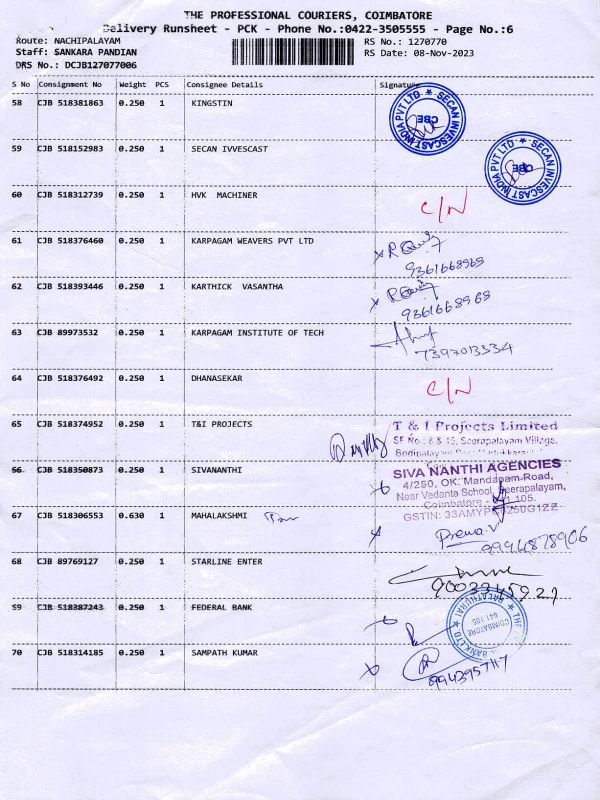 THE PROFESSIONAL COURIERS, COIMBATORE
Delivery Runsheet - PCK - Phone No.:0422-3505555 - Page No.:6
Route: NACHIPALAYAM RS No.: 1270770
Staff: SANKARA PANDIAN RS Date: 08-Nov-2023
DRS No.: DCJB127077006
S No Consignment No Weight PCS Consignee Details Signature
58 CJB 518381863 0.250 1 KINGSTIN
SECAN INVESCAST INDIA PVT LTD ★ CBE
59 CJB 518152983 0.250 1 SECAN IVVESCAST
SECAN INVESCAST INDIA PVT LTD ★ CBE
60 CJB 518312739 0.250 1 HVK MACHINER C/N
61 CJB 518376460 0.250 1 KARPAGAM WEAVERS PVT LTD
9361668969
62 CJB 518393446 0.250 1 KARTHICK VASANTHA
9361668969
63 CJB 89973532 0.250 1 KARPAGAM INSTITUTE OF TECH
7397013334
64 CJB 518376492 0.250 1 DHANASEKAR C/N
65 CJB 518374952 0.250 1 T&I PROJECTS T & I Projects Limited
SF No : 8 & 15, Seerapalayam Village,
66 CJB 518350873 0.250 1 SIVANANTHI SIVA NANTHI AGENCIES
4/250, OK. Mandapam Road,
Near Vedanta School, Seerapalayam,
Coimbatore - 641 105.
67 CJB 518306553 0.630 1 MAHALAKSHMI
Prema.V
9994878906
68 CJB 89769127 0.250 1 STARLINE ENTER
9003345927
59 CJB 518387243 0.250 1 FEDERAL BANK
COIMBATORE 641 105
70 CJB 518314185 0.250 1 SAMPATH KUMAR
9943957117